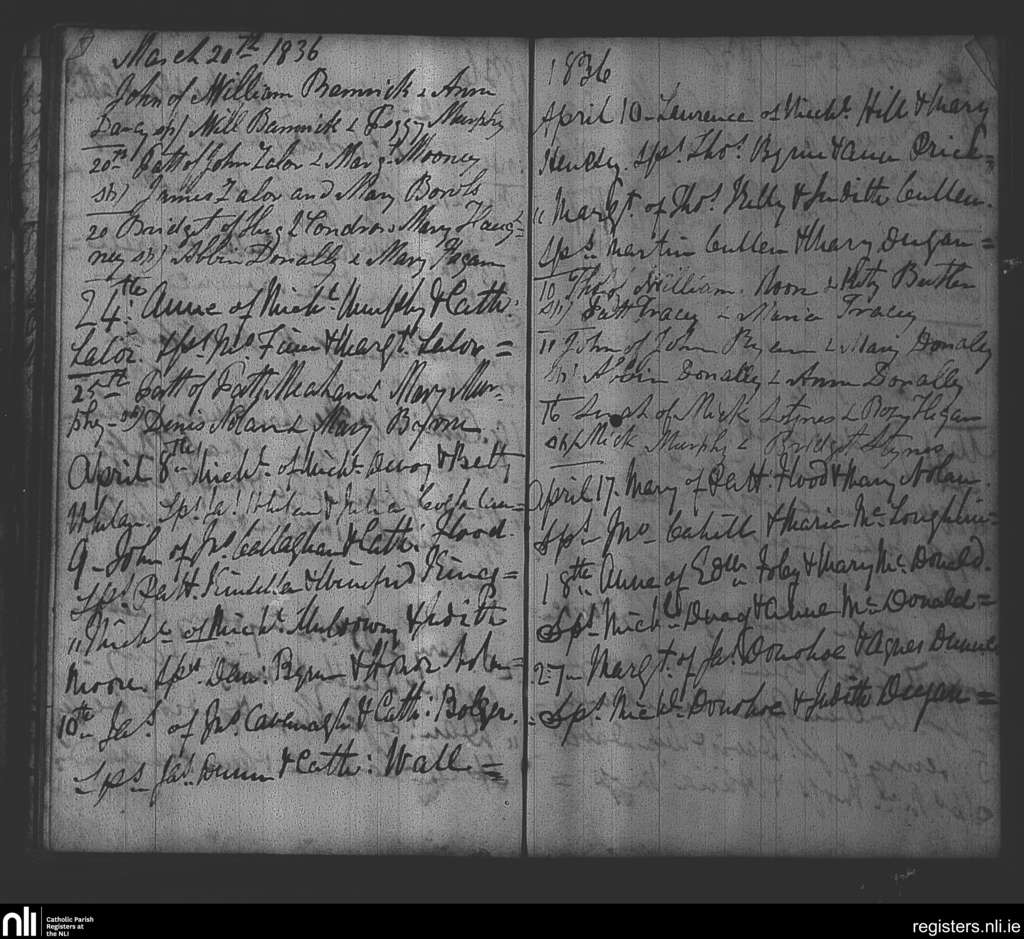 March 20th 1836
John of William Bannick & Ann
Darcy sps Will Bannick & Peggy Murphy
20th Patt of John Lalor & Margt Mooney
sps James Lalor and Mary
20 Bridget of Hugh & Mary
ney sps Donally & Mary Fagan
24th: Anne of Michl. Murphy & Cath:
Lalor. Sps. & Margt. Lalor =
25th Patt of Patt Meahan & Mary Mur-
phy - sps Denis Nolan & Mary
April 8th Michl. of Michl. Devoy & Betty
Whelan. Sps. Jas. Whelan & Julia =
9 - John of Jno. Callaghan & Cath: Flood.
Sps. Patt. Kinsella & Winifrid =
" Michl. of Michl. & Judith
Moore. Sps. Den: Byrn & Honor Nolan =
10th Jas. of Jno. Cavenagh & Cath: Bolger.
Sps. Jas. Dunn & Cath: Wall =
1836
April 10 - Laurence of Michl. Hill & Mary
Sps. Thos. Byrne & Anne =
" Margt. of Thos. Kelly & Judith Cullen.
Sps. Martin Cullen & Mary Dugan =
10 Thos of William & Kitty Butler
sps Patt Tracey & Maria Tracey
11 John of John Ryan & Mary Donally
sps Donally & Ann Donally
16 of Mick & Rozy Hagan
sps Mick Murphy & Bridget
April 17. Mary of Patt. Flood & Mary Nolan.
Sps. Jno. Cahill & Maria Mc.Loughlin =
18th. Anne of Edm. Foley & Mary Mc.Donald.
Sps. Michl. & Anne Mc.Donald =
27 - Margt. of Jas. Donohoe & Agnes Dunne
Sps. Michl. Donohoe & Judith Dugan =
nli
Catholic Parish
Registers at
the NLI
registers.nli.ie